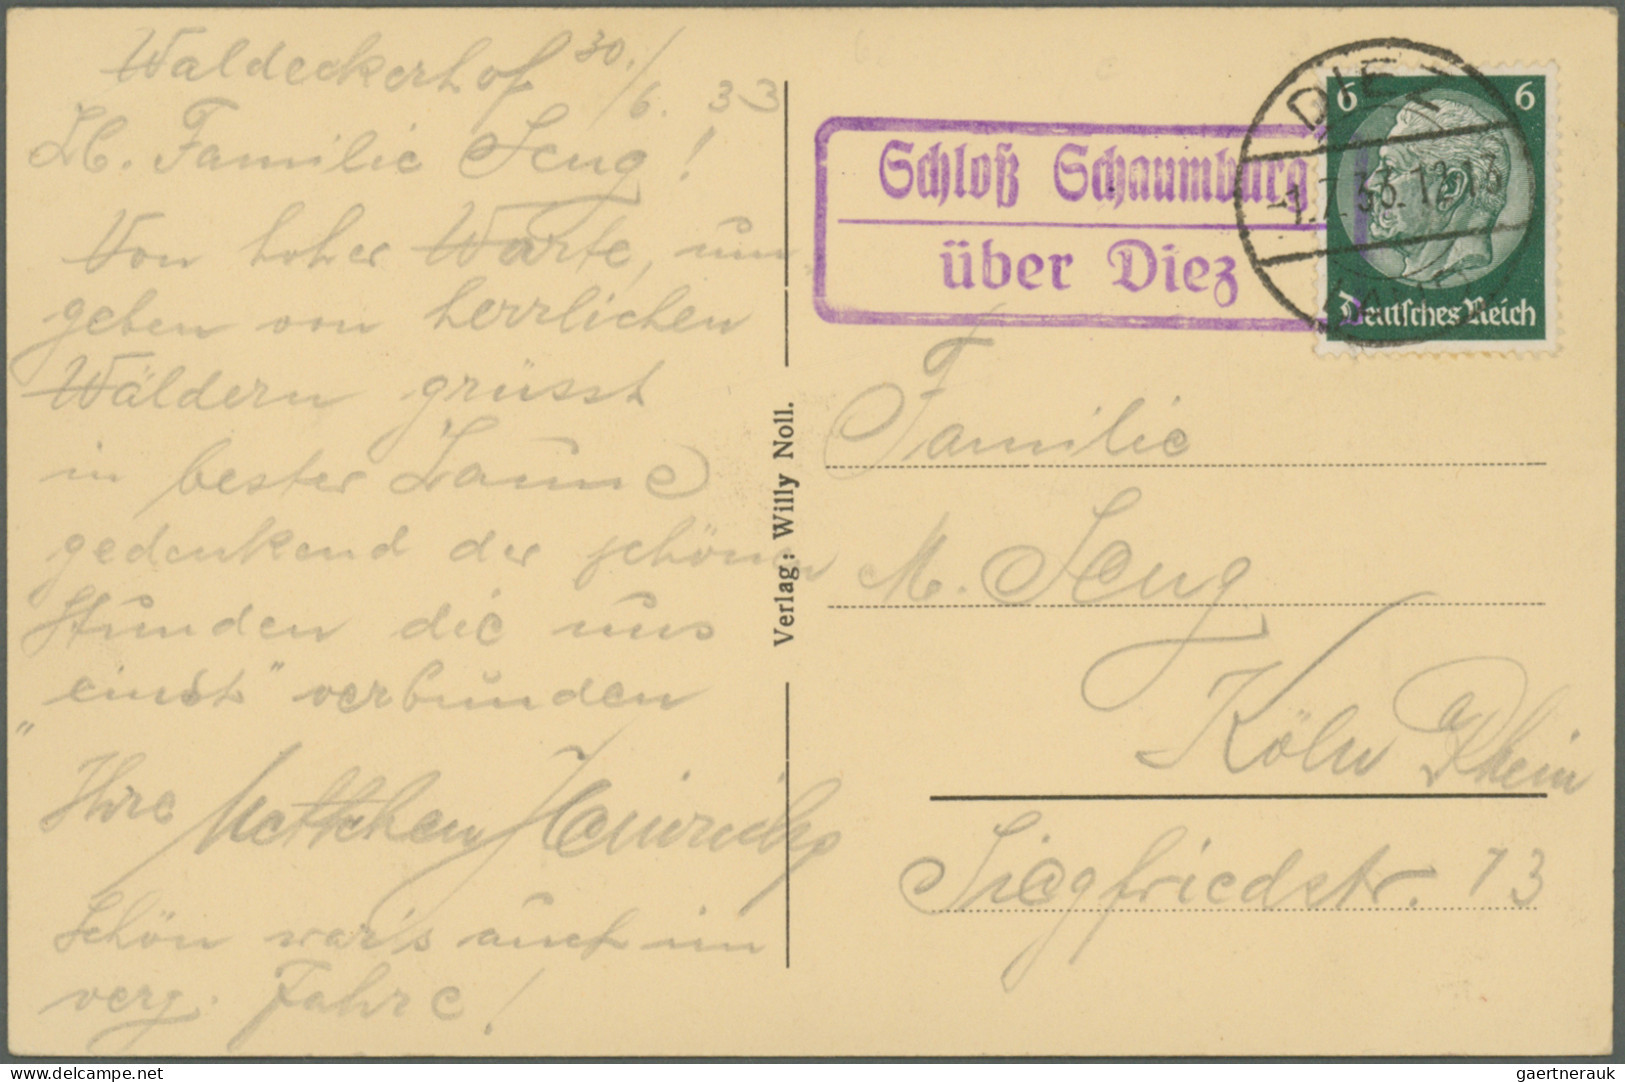 Waldeckerhof 30./6. 33
Lb. Familie Seug!
Von hoher Warte, um
geben von herrlichen
Wäldern grüsst
in bester Laune
gedenkend der schönen
Stunden die uns
„einst" verbunden
Ihre Mettchen Heinrichs
Schön war's auch im
verg. Jahre!
Verlag: Willy Noll.
Schloß Schaumburg
über Diez
DIEZ
-1.7.33.12-13
6 6
Deutsches Reich
Familie
M. Seug
Köln a Rhein
Siegfriedstr. 13
gaertnerauk